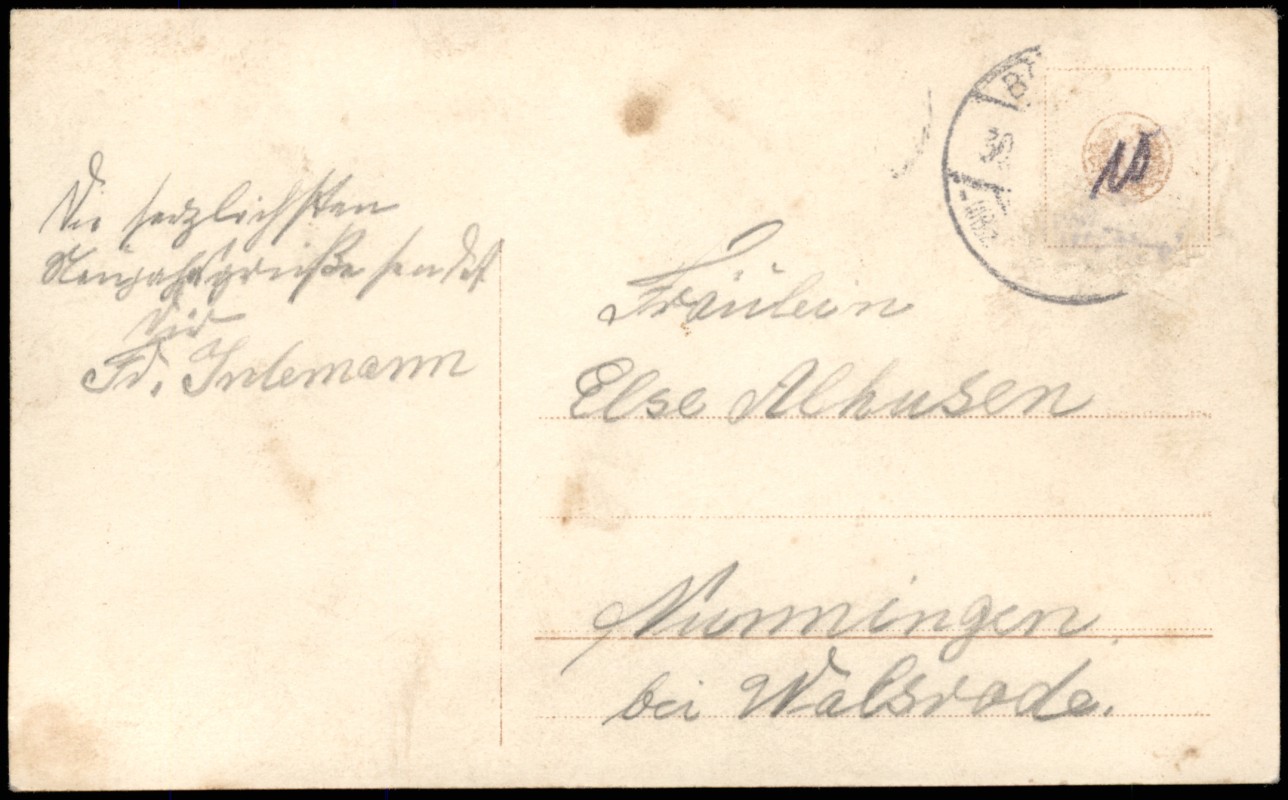 Die herzlichsten
Neujahrsgrüße sendet
Dir
Fr. Intemann
Fräulein
Else Alhusen
Nünningen
bei Walsrode.
10
30